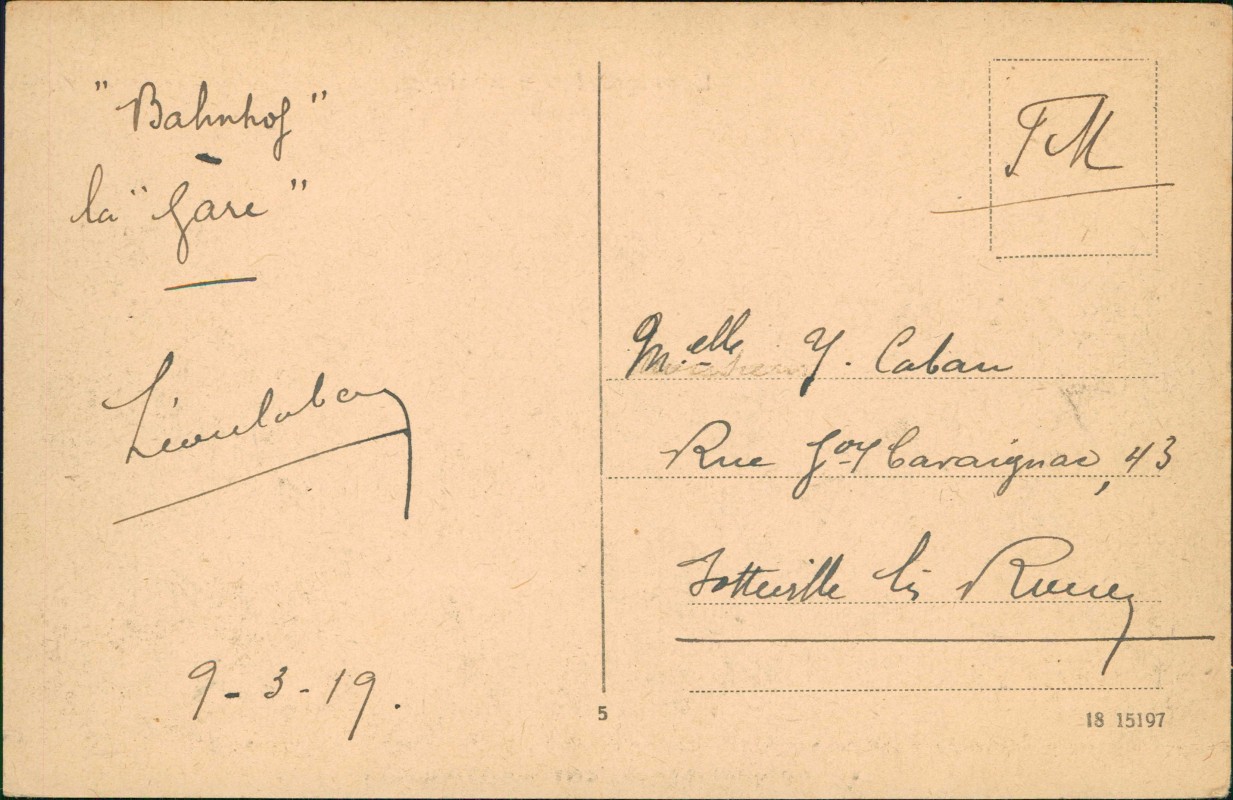 "Bahnhof"
-
la "Gare"
Léon Caban
9-3-19.
FM
Melle Y. Caban
Rue Gof Cavaignac, 43
Sotteville lès Rouen
5
18 15197